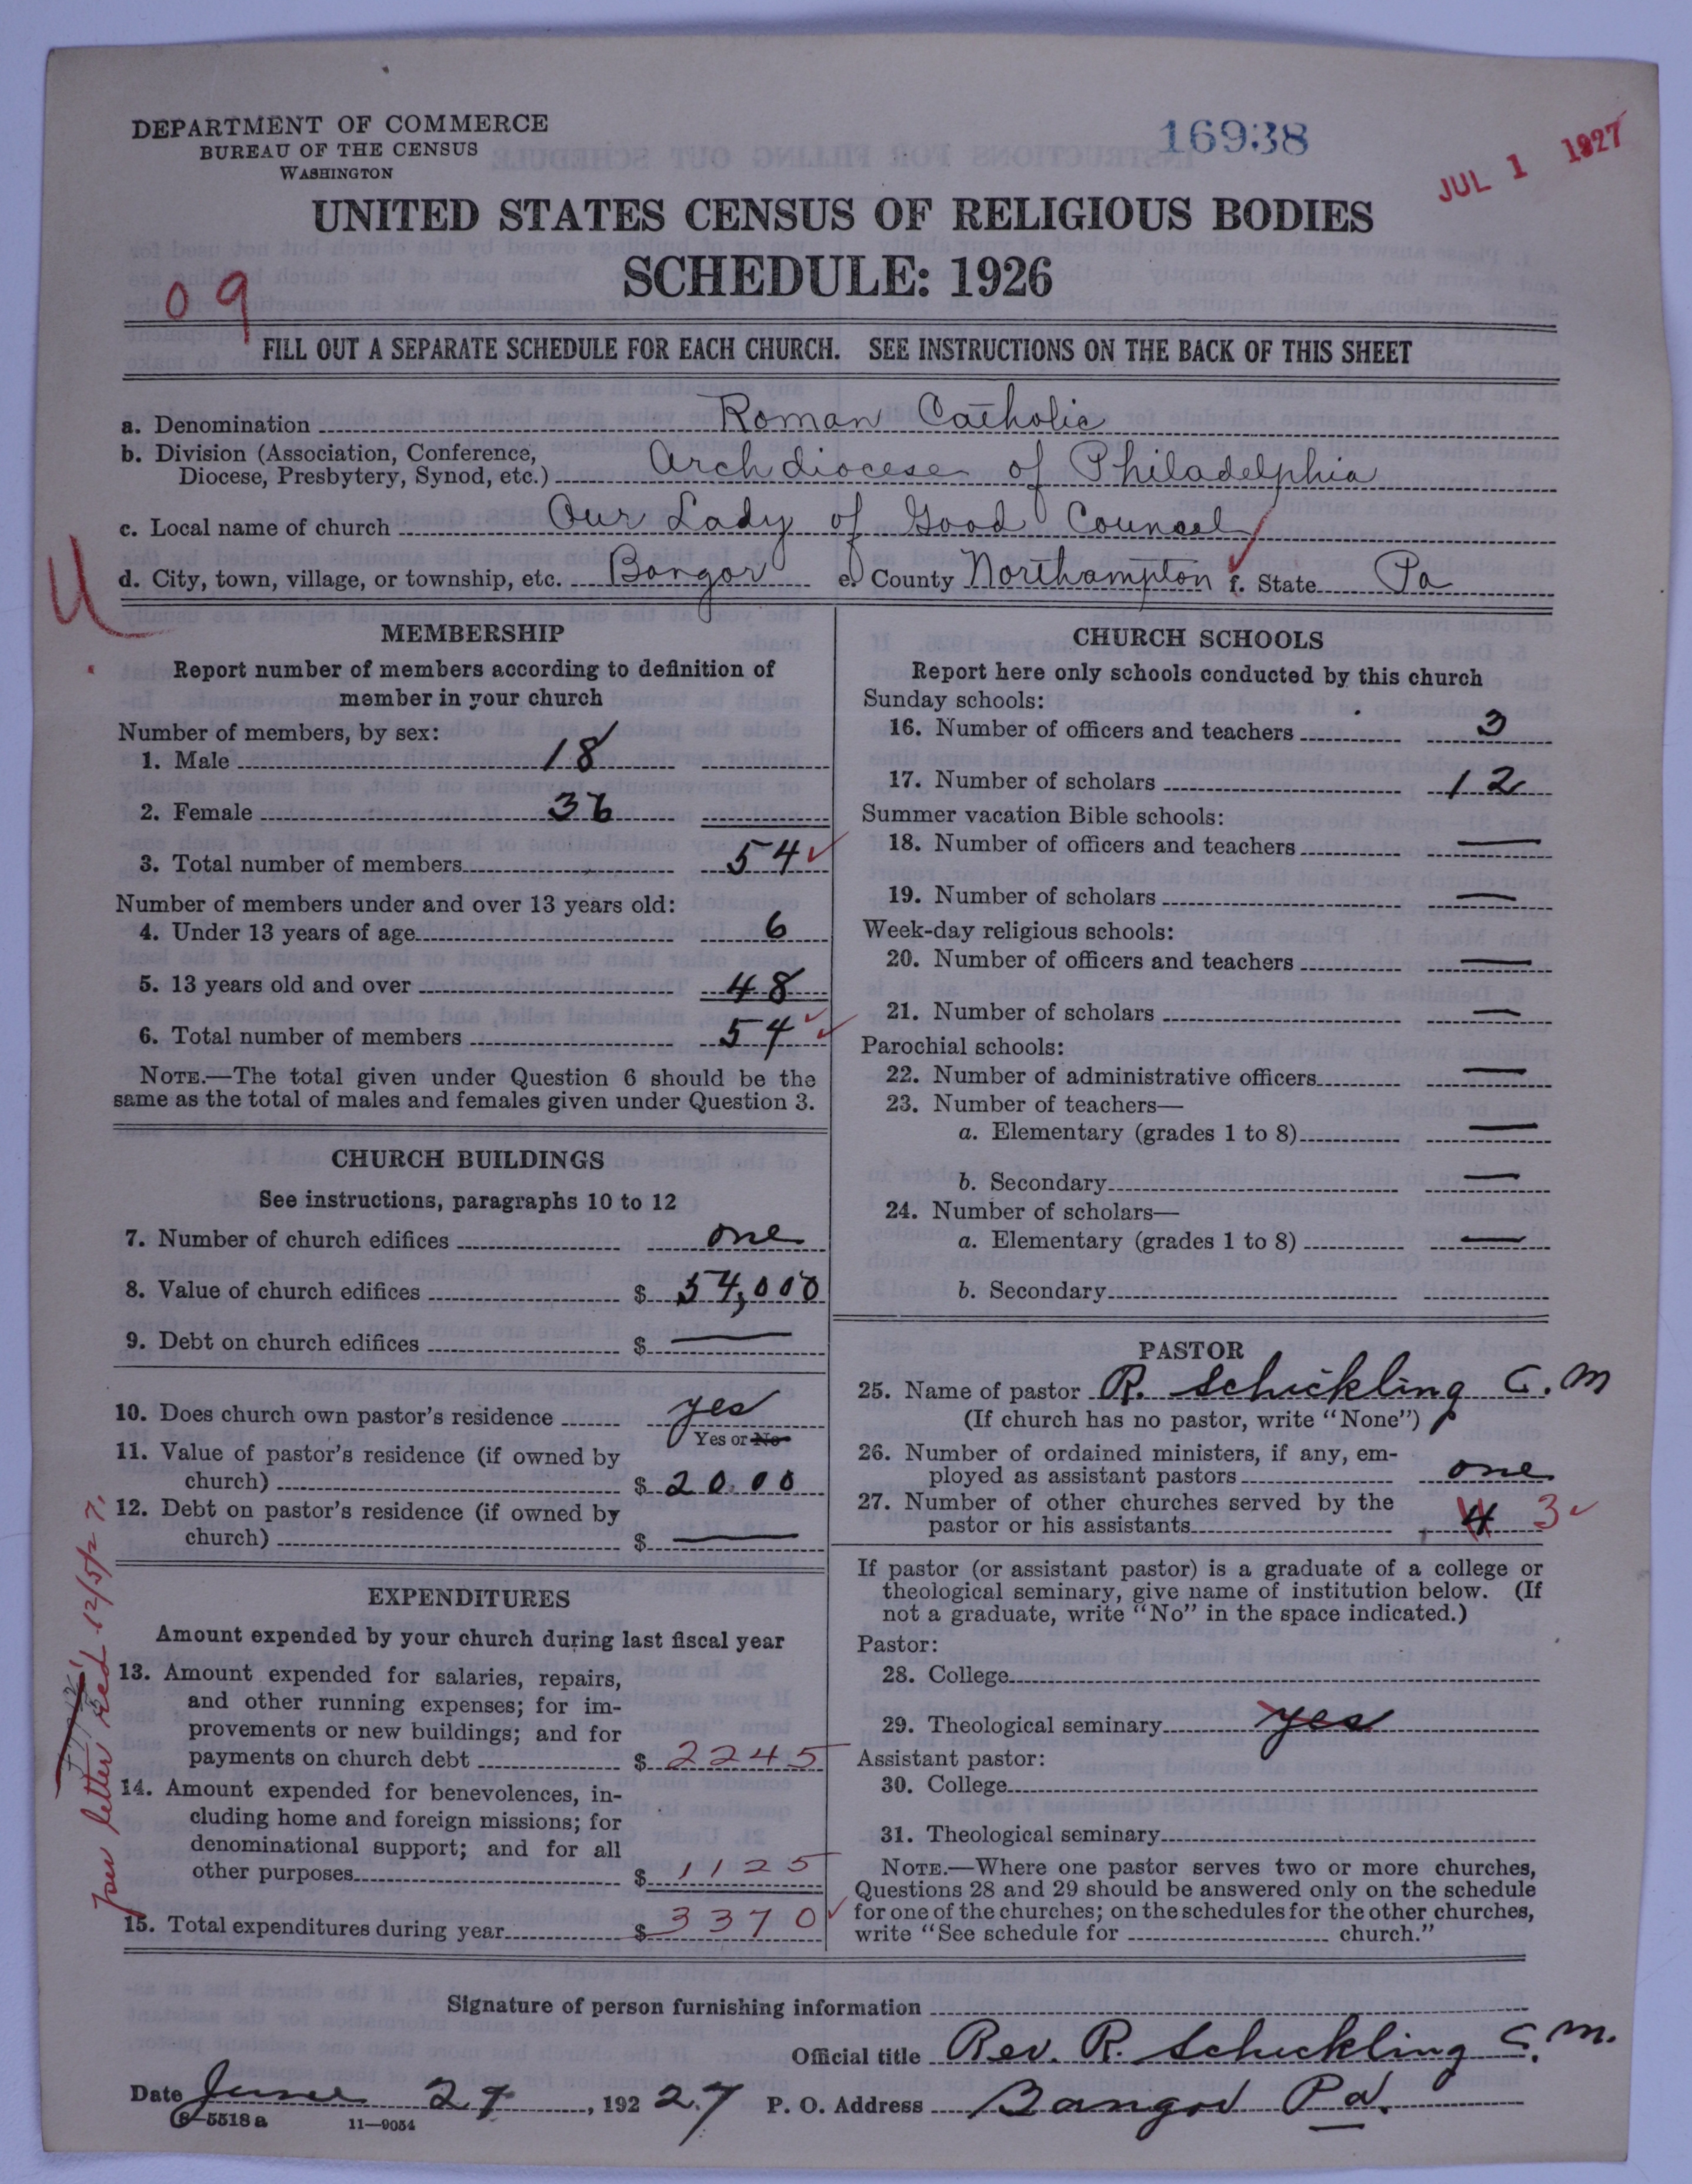 DEPARTMENT OF COMMERCE
BUREAU OF THE CENSUS
WASHINGTON
16938
JUL 1 1927
UNITED STATES CENSUS OF RELIGIOUS BODIES
SCHEDULE: 1926
09
FILL OUT A SEPARATE SCHEDULE FOR EACH CHURCH. SEE INSTRUCTIONS ON THE BACK OF THIS SHEET
a. Denomination Roman Catholic
b. Division (Association, Conference,
Diocese, Presbytery, Synod, etc.) Archdiocese of Philadelphia
c. Local name of church Our Lady of Good Councel
d. City, town, village, or township, etc. Bangor e. County Northampton f. State Pa
MEMBERSHIP
Report number of members according to definition of
member in your church
Number of members, by sex:
1. Male 18
2. Female 36
3. Total number of members 54
Number of members under and over 13 years old:
4. Under 13 years of age 6
5. 13 years old and over 48
6. Total number of members 54
NOTE.—The total given under Question 6 should be the
same as the total of males and females given under Question 3.
CHURCH BUILDINGS
See instructions, paragraphs 10 to 12
7. Number of church edifices one
8. Value of church edifices $ 54,000
9. Debt on church edifices $ —
10. Does church own pastor's residence yes
Yes or No
11. Value of pastor's residence (if owned by
church) $ 2000
12. Debt on pastor's residence (if owned by
church) $ —
EXPENDITURES
Amount expended by your church during last fiscal year
13. Amount expended for salaries, repairs,
and other running expenses; for im-
provements or new buildings; and for
payments on church debt $ 2245
14. Amount expended for benevolences, in-
cluding home and foreign missions; for
denominational support; and for all
other purposes $ 1125
15. Total expenditures during year $ 3370
per letter Recd 12/5/27.
CHURCH SCHOOLS
Report here only schools conducted by this church
Sunday schools:
16. Number of officers and teachers 3
17. Number of scholars 12
Summer vacation Bible schools:
18. Number of officers and teachers —
19. Number of scholars —
Week-day religious schools:
20. Number of officers and teachers —
21. Number of scholars —
Parochial schools:
22. Number of administrative officers —
23. Number of teachers—
a. Elementary (grades 1 to 8) —
b. Secondary —
24. Number of scholars—
a. Elementary (grades 1 to 8) —
b. Secondary
PASTOR
25. Name of pastor R. Schickling C.M
(If church has no pastor, write "None")
26. Number of ordained ministers, if any, em-
ployed as assistant pastors one
27. Number of other churches served by the
pastor or his assistants 4 3
If pastor (or assistant pastor) is a graduate of a college or
theological seminary, give name of institution below. (If
not a graduate, write "No" in the space indicated.)
Pastor:
28. College
29. Theological seminary yes
Assistant pastor:
30. College
31. Theological seminary
NOTE.—Where one pastor serves two or more churches,
Questions 28 and 29 should be answered only on the schedule
for one of the churches; on the schedules for the other churches,
write "See schedule for church."
Signature of person furnishing information
Official title Rev. R. Schickling C.M.
Date June 29, 1927 P. O. Address Bangor Pa.
8—5518a 11—9054